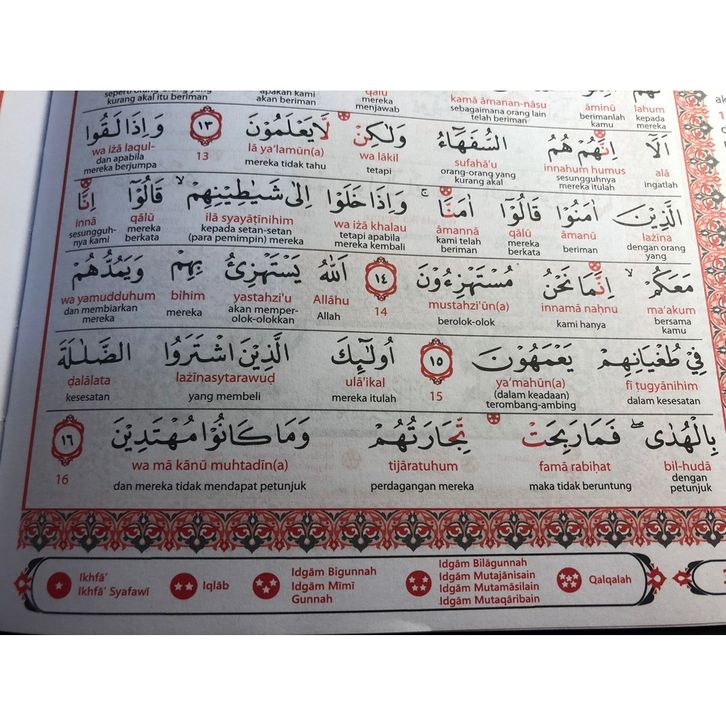 lahum āminū kamā āmanan-nāsu qālū
kepada mereka berimanlah kamu sebagaimana orang lain telah beriman mereka menjawab apakah kami akan beriman kurang akal itu beriman
اَلَآ اِنَّهُمْ هُمُ السُّفَهَاۤءُ وَلٰكِنْ لَّا يَعْلَمُوْنَ ١٣ وَاِذَا لَقُوا
alā innahum humus sufahā'u wa lākil lā ya'lamūn(a) 13 wa iżā laqul-
ingatlah sesungguhnya mereka itulah orang-orang yang kurang akal tetapi mereka tidak tahu dan apabila mereka berjumpa
الَّذِيْنَ اٰمَنُوْا قَالُوْٓا اٰمَنَّا ۚ وَاِذَا خَلَوْا اِلٰى شَيٰطِيْنِهِمْ ۙ قَالُوْٓا اِنَّا
lażīna āmanū qālū āmannā wa iżā khalau ilā syayāṭīnihim qālū innā
dengan orang yang beriman mereka berkata kami telah beriman tetapi apabila mereka kembali kepada setan-setan (para pemimpin) mereka mereka berkata sesungguh-nya kami
مَعَكُمْ ۙ اِنَّمَا نَحْنُ مُسْتَهْزِءُوْنَ ١٤ اَللّٰهُ يَسْتَهْزِئُ بِهِمْ وَيَمُدُّهُمْ
ma'akum innamā naḥnu mustahzi'ūn(a) 14 Allāhu yastahzi'u bihim wa yamudduhum
bersama kamu kami hanya berolok-olok Allah akan memper-olok-olokkan mereka dan membiarkan mereka
فِيْ طُغْيَانِهِمْ يَعْمَهُوْنَ ١٥ اُولٰۤىِٕكَ الَّذِيْنَ اشْتَرَوُا الضَّلٰلَةَ
fī ṭugyānihim ya'mahūn(a) 15 ulā'ikal lażīnasytarawuḍ ḍalālata
dalam kesesatan (dalam keadaan) terombang-ambing mereka itulah yang membeli kesesatan
بِالْهُدٰىۖ فَمَا رَبِحَتْ تِّجَارَتُهُمْ وَمَا كَانُوْا مُهْتَدِيْنَ ١٦
bil-hudā famā rabiḥat tijāratuhum wa mā kānū muhtadīn(a) 16
dengan petunjuk maka tidak beruntung perdagangan mereka dan mereka tidak mendapat petunjuk
Ikhfā'
Ikhfā' Syafawī
Iqlāb
Idgām Bigunnah
Idgām Mīmī
Gunnah
Idgām Bilāgunnah
Idgām Mutajānisain
Idgām Mutamāsilain
Idgām Mutaqāribain
Qalqalah